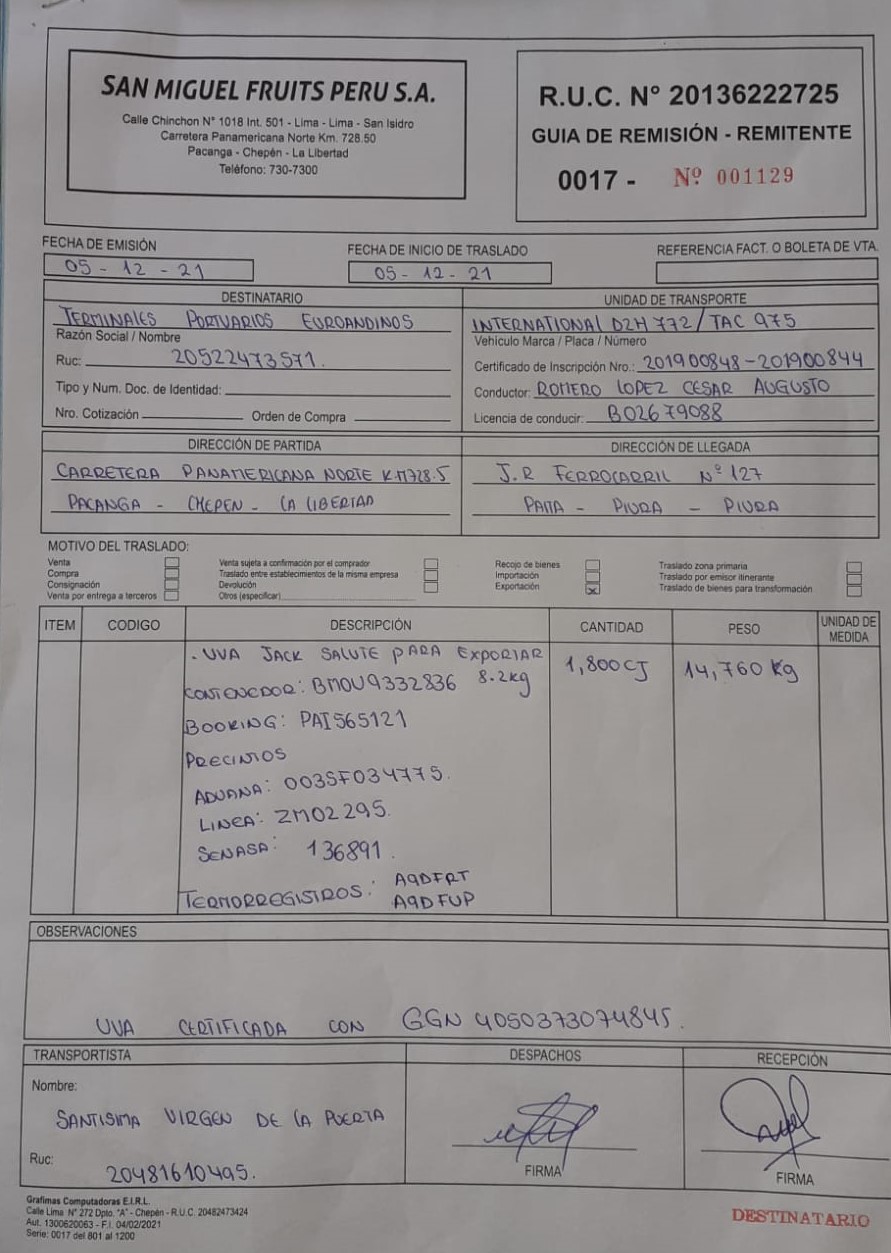 SAN MIGUEL FRUITS PERU S.A.
Calle Chinchon N° 1018 Int. 501 - Lima - Lima - San Isidro
Carretera Panamericana Norte Km. 728.50
Pacanga - Chepén - La Libertad
Teléfono: 730-7300
R.U.C. N° 20136222725
GUIA DE REMISIÓN - REMITENTE
0017 - Nº 001129
FECHA DE EMISIÓN
05 - 12 - 21
FECHA DE INICIO DE TRASLADO
05 - 12 - 21
REFERENCIA FACT. O BOLETA DE VTA.
DESTINATARIO
TERMINALES PORTUARIOS EUROANDINOS
Razón Social / Nombre
Ruc: 20522473571.
Tipo y Num. Doc. de Identidad:
Nro. Cotización Orden de Compra
UNIDAD DE TRANSPORTE
INTERNATIONAL D2H 772 / TAC 975
Vehículo Marca / Placa / Número
Certificado de Inscripción Nro.: 201900848-201900844
Conductor: ROMERO LOPEZ CESAR AUGUSTO
Licencia de conducir: B02679088
DIRECCIÓN DE PARTIDA
CARRETERA PANAMERICANA NORTE K.M728.5
PACANGA - CHEPEN - LA LIBERTAD
DIRECCIÓN DE LLEGADA
J.R FERROCARRIL Nº 127
PAITA - PIURA - PIURA
MOTIVO DEL TRASLADO:
Venta
Compra
Consignación
Venta por entrega a terceros
Venta sujeta a confirmación por el comprador
Traslado entre establecimientos de la misma empresa
Devolución
Otros (especificar)
Recojo de bienes
Importación
Exportación X
Traslado zona primaria
Traslado por emisor itinerante
Traslado de bienes para transformación
ITEM CODIGO DESCRIPCIÓN CANTIDAD PESO UNIDAD DE MEDIDA
. UVA JACK SALUTE PARA EXPORTAR 1,800CJ 14,760 kg
CONTENEDOR: BMOU9332836 8.2kg
BOOKING: PAI565121
PRECINTOS
ADUANA: 003SF034775.
LINEA: ZM02295.
SENASA: 136891.
TERMORREGISTROS: A9DFRT
A9DFUP
OBSERVACIONES
UVA CERTIFICADA CON GGN 4050373074845.
TRANSPORTISTA
Nombre:
SANTISIMA VIRGEN DE LA PUERTA
Ruc:
20481610495.
DESPACHOS
FIRMA
RECEPCIÓN
FIRMA
Grafimas Computadoras E.I.R.L.
Calle Lima N° 272 Dpto. "A" - Chepén - R.U.C. 20482473424
Aut. 1300620063 - F.I. 04/02/2021
Serie: 0017 del 801 al 1200
DESTINATARIO